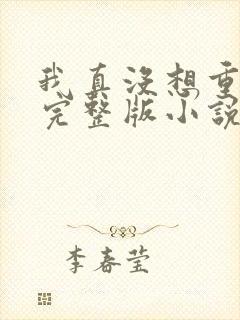 我真没想重
完整版小說
李春莹